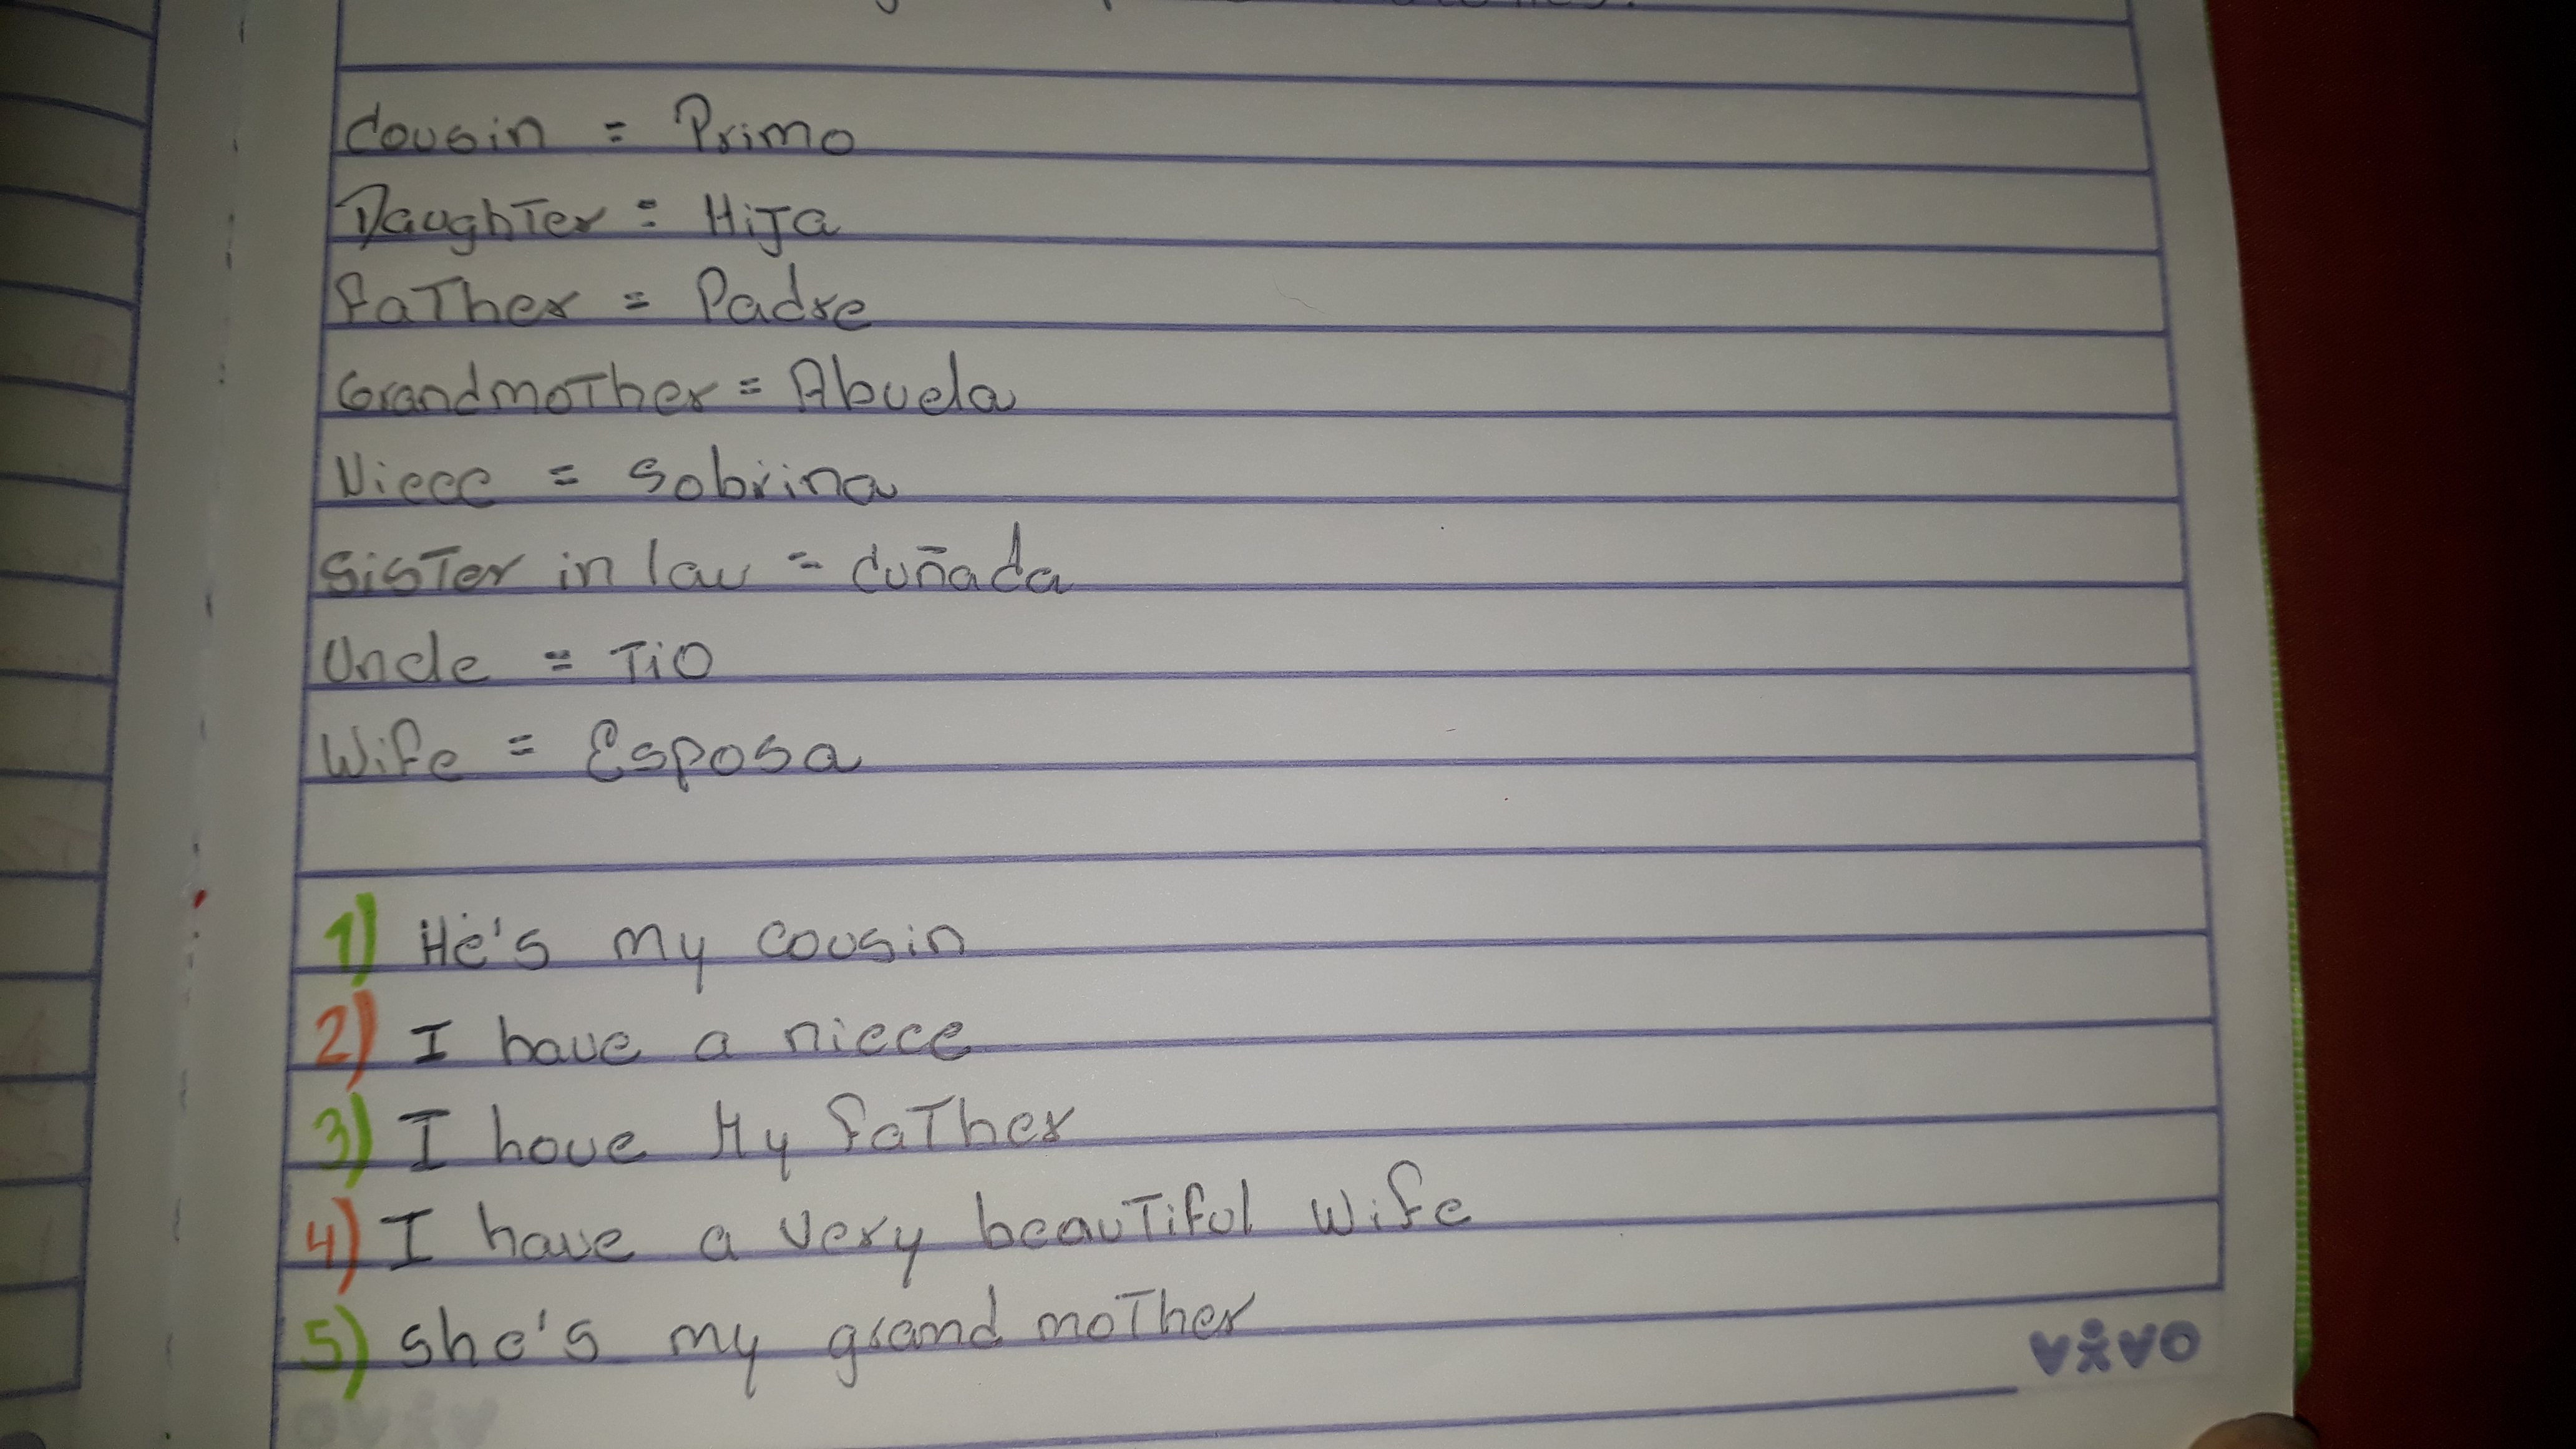 Cousin = Primo
Daughter = Hija
father = Padre
Grandmother = Abuela
Niece = Sobrina
Sister in law = Cuñada
Uncle = Tio
Wife = Esposa
1) He's my cousin
2) I have a niece
3) I have My father
4) I have a very beautiful wife
5) she's my grand mother
vivo